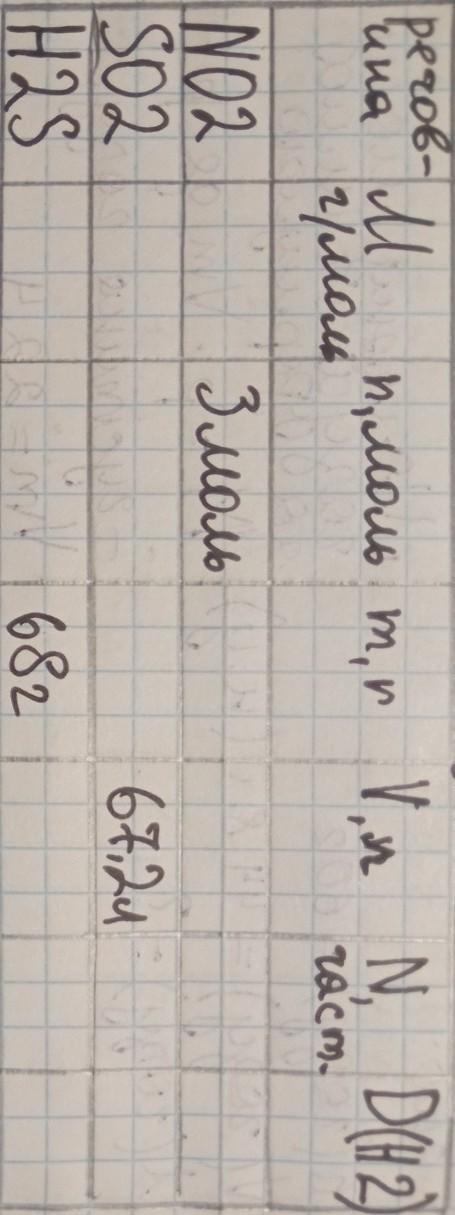 речов- М n, моль m, г V, л N, D(H2)
ина г/моль част.
NO2 3 моль
SO2 67,2л
H2S 68г